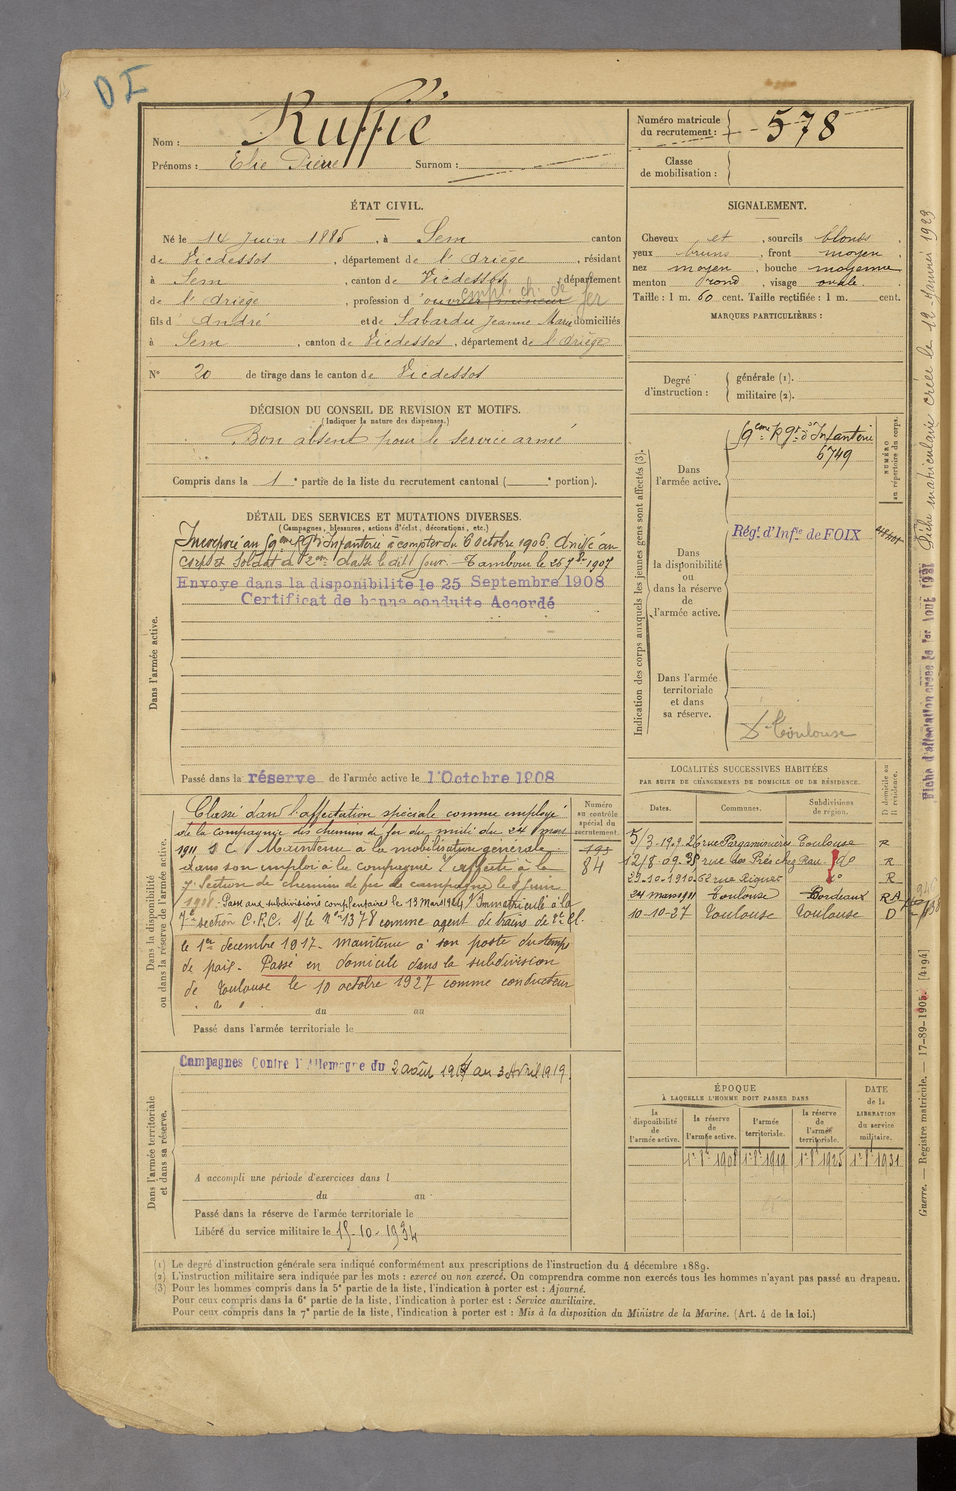 DI
Nom : Ruffié
Prénoms : Elie Pierre Surnom :
Numéro matricule du recrutement : 578
Classe de mobilisation :
ÉTAT CIVIL.
Né le 14 Juin 1885, à Sem canton
de Vicdessos, département de l'Ariège, résidant
à Sem, canton de Vicdessos, département
de l'Ariège, profession d'ouvrier mineur
empl. ch. de fer
fils d'André et de Sabardu Jeanne Marie domiciliés
à Sem, canton de Vicdessos, département de l'Ariège
N° 20 de tirage dans le canton de Vicdessos
SIGNALEMENT.
Cheveux et, sourcils blonds,
yeux bruns, front moyen,
nez moyen, bouche moyenne
menton rond, visage ovale.
Taille : 1 m. 60 cent. Taille rectifiée : 1 m. cent.
MARQUES PARTICULIÈRES :
Degré d'instruction : générale (1).
militaire (2).
DÉCISION DU CONSEIL DE REVISION ET MOTIFS.
(Indiquer la nature des dispenses.)
Bon absent pour le service armé
Compris dans la 1e partie de la liste du recrutement cantonal ( e portion).
DÉTAIL DES SERVICES ET MUTATIONS DIVERSES.
(Campagnes, blessures, actions d'éclat, décorations, etc.)
Dans l'armée active.
Incorporé au 59eme Rgt d'Infanterie à compter du 6 octobre 1906. Arrivé au
corps et soldat de 2eme classe le dit jour. Tambour le 25 7bre 1907
Envoyé dans la disponibilité le 25 Septembre 1908
Certificat de bonne conduite Accordé
Passé dans la réserve de l'armée active le 1 Octobre 1908
Indication des corps auxquels les jeunes gens sont affectés (3).
Dans l'armée active.
59eme Rgt d'Infanterie
6749
NUMÉRO au répertoire du corps.
Dans la disponibilité ou dans la réserve de l'armée active.
Régt. d'Infie de FOIX
Dans l'armée territoriale et dans sa réserve.
Toulouse
Dans la disponibilité ou dans la réserve de l'armée active.
Classé dans l'affectation spéciale comme employé
de la compagnie des chemins de fer du midi du 24 mars
1911 S C. Maintenu à la mobilisation générale
dans son emploi à la compagnie. Affecté à la
7e Section de chemins de fer de campagne le 5 juin
1918. Passé aux subdivisions complémentaires le 13 Mars 1924. Immatriculé à la
7e section C.F.C. s/ le n° 1378 comme agent de trains de 2e Cl.
le 1er decembre 1917. maintenu à son poste du temps
de paix. Passé en domicile dans la subdivision
de Toulouse le 10 octobre 1927 comme conducteur
du au
Passé dans l'armée territoriale le
Numéro au contrôle spécial du recrutement.
84
LOCALITÉS SUCCESSIVES HABITÉES
PAR SUITE DE CHANGEMENTS DE DOMICILE OU DE RÉSIDENCE.
Dates. Communes. Subdivisions de région. D domicile ou R résidence.
5/3.1909 26 rue Pargaminières Toulouse R
12/8.09 38 rue des Prés chez Rau do R
29-10-1910 52 rue Riquet do R
24 mars 1911 Toulouse Bordeaux RA
10-10-27 Toulouse Toulouse D
Dans l'armée territoriale et dans sa réserve.
Campagnes Contre l'Allemagne du 2 août 1914 au 3 Avril 1919.
A accompli une période d'exercices dans l
du au
Passé dans la réserve de l'armée territoriale le
Libéré du service militaire le 15-10-1934
ÉPOQUE
À LAQUELLE L'HOMME DOIT PASSER DANS
la disponibilité de l'armée active. la réserve de l'armée active. l'armée territoriale. la réserve de l'armée territoriale. DATE de la LIBÉRATION du service militaire.
1er 8bre 1908 1er 8bre 1919 1er 8bre 1925 1er 8bre 1931
(1) Le degré d'instruction générale sera indiqué conformément aux prescriptions de l'instruction du 4 décembre 1889.
(2) L'instruction militaire sera indiquée par les mots : exercé ou non exercé. On comprendra comme non exercés tous les hommes n'ayant pas passé au drapeau.
(3) Pour les hommes compris dans la 5e partie de la liste, l'indication à porter est : Ajourné.
Pour ceux compris dans la 6e partie de la liste, l'indication à porter est : Service auxiliaire.
Pour ceux compris dans la 7e partie de la liste, l'indication à porter est : Mis à la disposition du Ministre de la Marine. (Art. 4 de la loi.)
Fiche matriculaire créée le 12 Janvier 1929
Fiche d'affectation créée le 1er Août 1931
Guerre. — Registre matricule. — 17-89-1905. [4194]